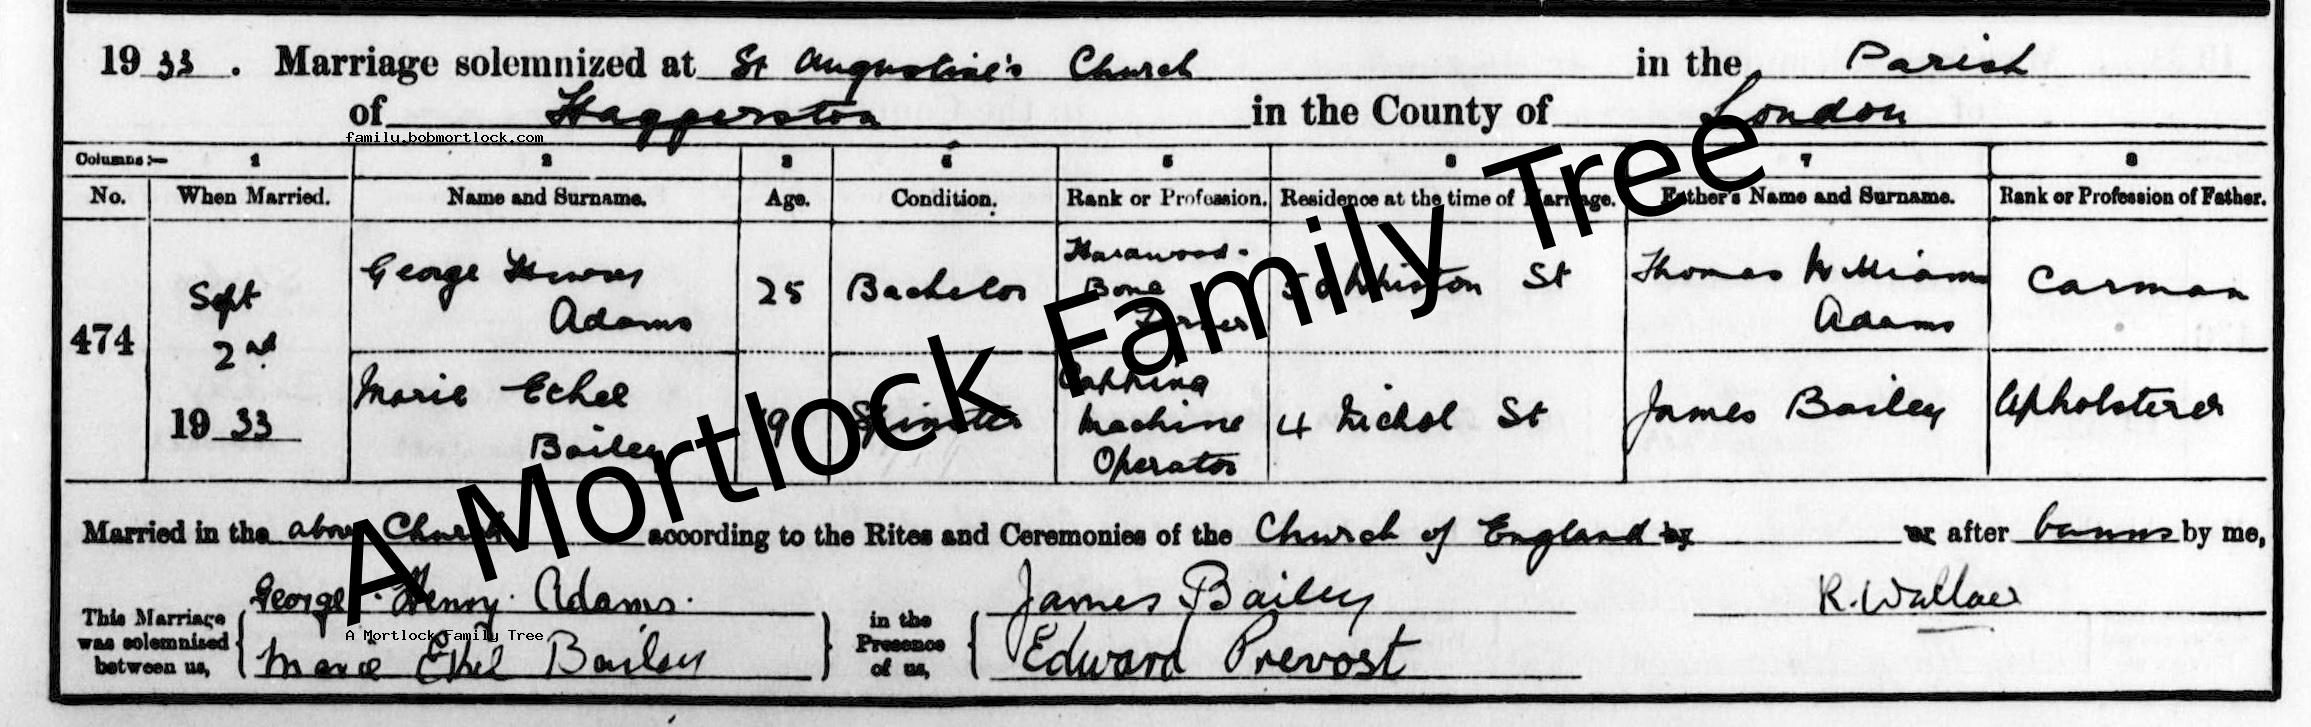 1933. Marriage solemnized at St Augustine's Church in the Parish
of Haggerston in the County of London
family.bobmortlock.com
Columns:— 1 2 3 4 5 6 7 8
No. When Married. Name and Surname. Age. Condition. Rank or Profession. Residence at the time of Marriage. Father's Name and Surname. Rank or Profession of Father.
474
Sept
2nd
1933
George Henry
Adams
25
Bachelor
Hardwood-
Bone
Turner
Whiston St
Thomas William
Adams
Carman
Marie Ethel
Bailey
19
Spinster
Capping
Machine
Operator
4 Nichol St
James Bailey
Upholsterer
Married in the above Church according to the Rites and Ceremonies of the Church of England by or after banns by me,
This Marriage
was solemnised
between us,
George Henry Adams.
Marie Ethel Bailey
in the
Presence
of us,
James Bailey
Edward Prevost
R. Wallace
A Mortlock Family Tree
A Mortlock Family Tree